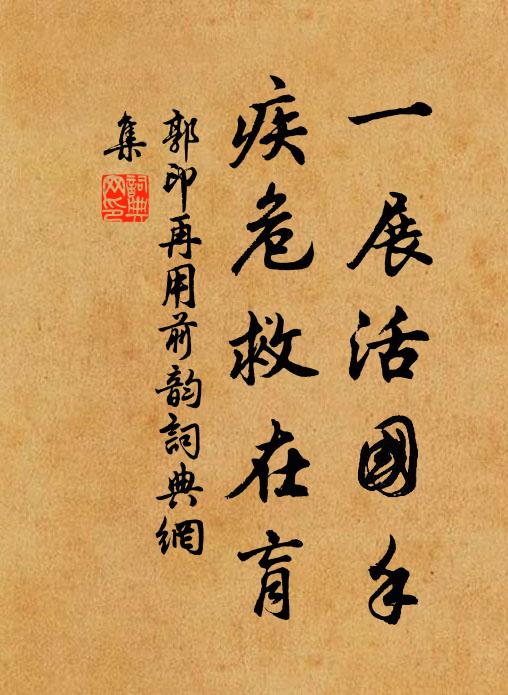 一展活國手
疾危救在肓
郭印再用前韵詞典網
集
詞典
网印